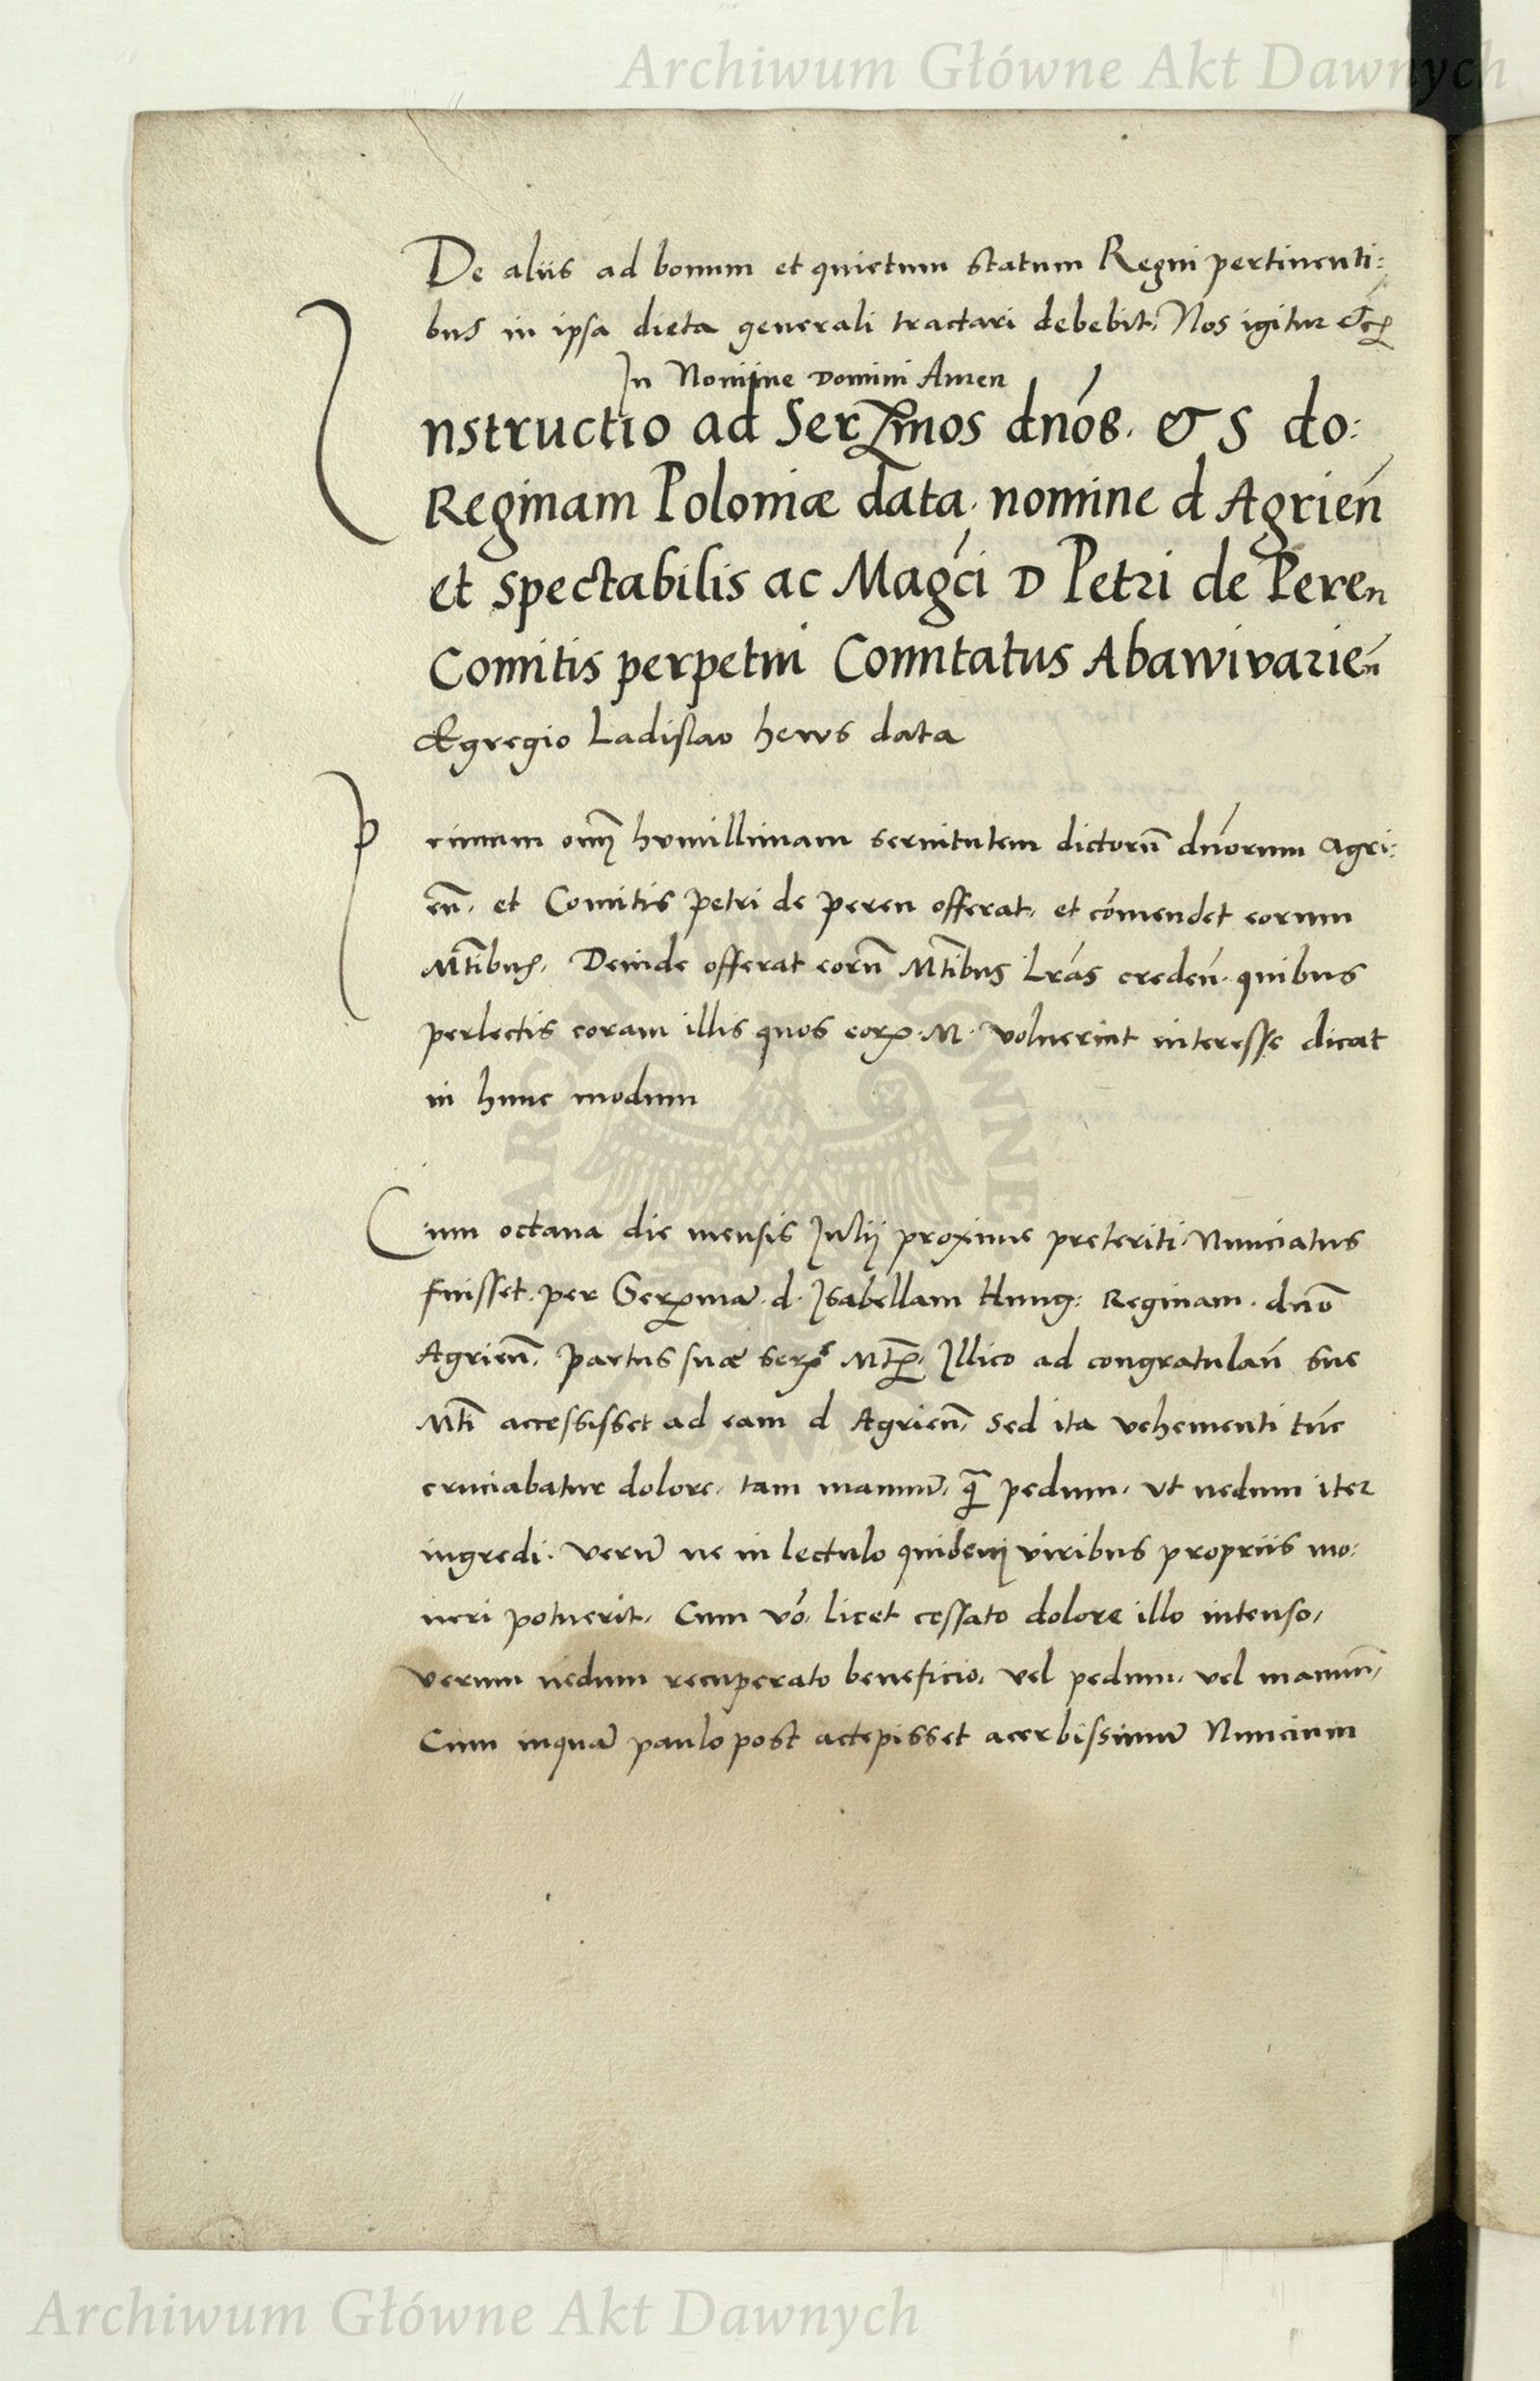 Archiwum Główne Akt Dawnych
De aliis ad bonum et quietum statum Regni pertinenti:
bus in ipsa dieta generali tractari debebit. Nos igitur etc
In Nomine Domini Amen
Instructio ad Sermos dnos. & S do:
Reginam Poloniæ data. nomine d Agrien̄
et spectabilis ac Magci D Petri de Peren
Comitis perpetui Comitatus Abawivarien̄
Egregio Ladislao hews data
Primum om̄ humillimam seruitutem dictorū dnorum Agri:
en̄. et Comitis petri de peren offerat. et cōmendet eorum
Mtībus. Deinde offerat eorū Mtībus lrās creden̄. quibus
perlectis coram illis quos eorum. M. voluerint interesse dicat
in hunc modum
Cum octaua die mensis Julij proxime preteriti. Nunciatus
fuisset. per Sermā. d. Isabellam Hung: Reginam. dnō
Agrien̄. partus suæ Serme Mtis. Illico ad congratulan̄ sue
Mtī accessisset ad eam d Agrien̄. sed ita vehementi tūc
cruciabatur dolore. tam manuū. q̄ pedum. vt nedum iter
ingredi. verū ne in lectulo quidem viribus propriis mo:
ueri potuerit. Cum vō. licet cessato dolore illo intenso,
verum nedum recuperato beneficio. vel pedum. vel manuū,
Cum inquā paulo post accepisset acerbissimū Nuncium
ARCHIWUM GŁÓWNE AKT DAWNYCH
Archiwum Główne Akt Dawnych